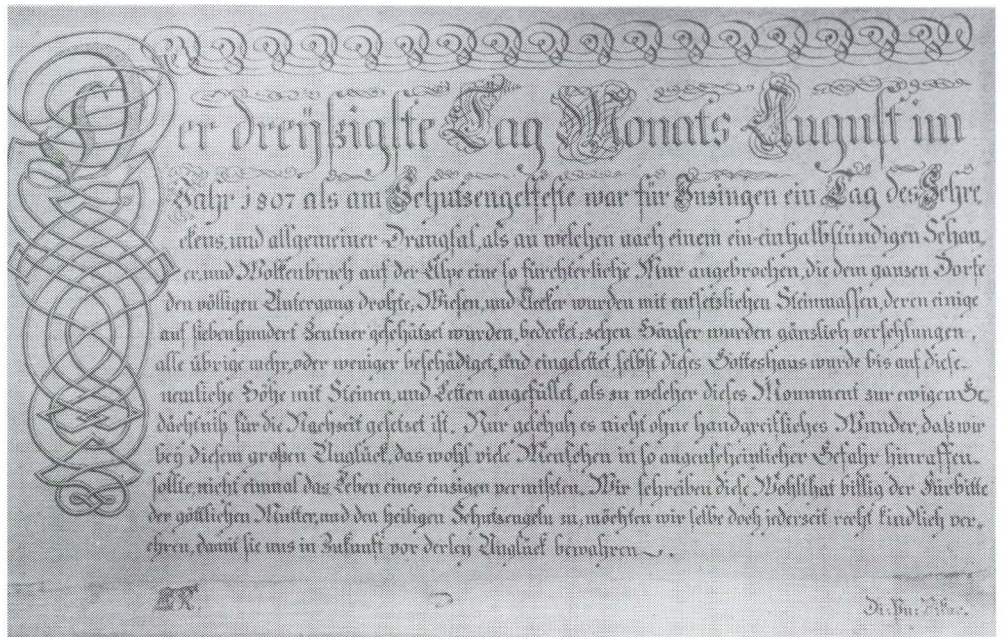 Der dreÿßigste Tag Monats August im
Jahr 1807 als am Schutzengelfeste war für Inzingen ein Tag des Schre
ckens, und allgemeiner Drangsal, als an welchen nach einem ein-einhalbstündigen Schau,
er, und Wolkenbruch auf der Alpe eine so fürchterliche Mur angebrochen, die dem ganzen Dorfe
den völligen Untergang drohte, Wiesen, und Aecker wurden mit entsetzlichen Steinmassen, deren einige
auf siebenhundert Zentner geschätzet wurden, bedecket; zehen Häuser wurden gänzlich verschlungen,
alle übrige mehr, oder weniger beschädiget, und eingelettet, selbst dieses Gotteshaus wurde bis auf diese
nemliche Höhe mit Steinen, und Letten angefüllet, als zu welcher dieses Monument zur ewigen Ge,
dächtniß für die Nachzeit gesetzet ist. Nur geschah es nicht ohne handgreifliches Wunder, daß wir
bëy diesem großen Unglück, das wohl viele Menschen in so augenscheinlicher Gefahr hinraffen
sollte, nicht einmal das Leben eines einzigen vermißten. Wir schreiben diese Wohlthat billig der Fürbitte
der göttlichen Mutter, und den heiligen Schutzengeln zu; möchten wir selbe doch jederzeit recht kindlich ver,
ehren, damit sie uns in Zukunft vor derley Unglück bewahren.